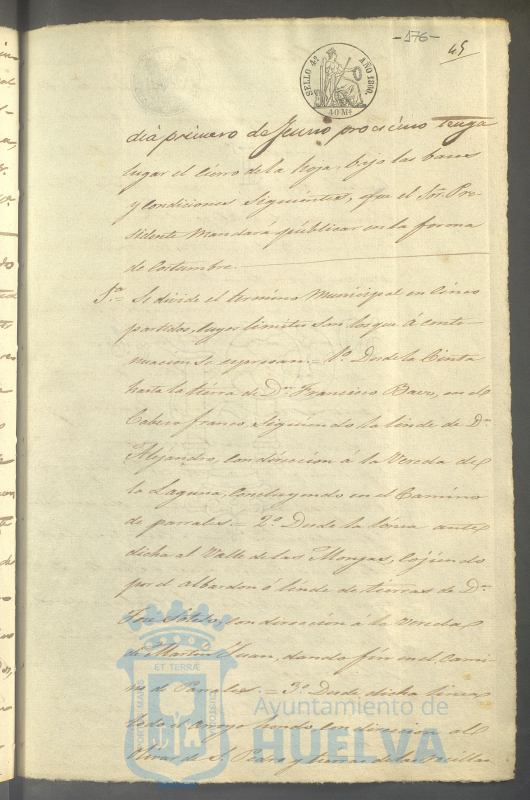 -176-
45
SELLO 4º AÑO 1860.
40 Ms
dia primero de Junio procsimo tenga
lugar el cierro de la hoja, bajo las bases
y condiciones siguientes, que el Sor. Pre-
sidente mandará publicar en la forma
de costumbre.
1ª = Se divide el termino Municipal en Cinco
partidos, cuyos limites son los que á conti-
nuacion se espresan. = 1º Desde la Cinta
hasta la tierra de Dn. Francisco Baez, en el
Cabezo franco siguiendo la linde de Dn.
Alejandro, con direccion á la Vereda de
la Laguna, concluyendo en el Camino
de parrales = 2º Desde la linea ante
dicha al Valle de las Monjas, cojiendo
por el albardon ó linde de tierras de Dn.
José Soto, con direccion á la vereda
de Martin Juan, dando fin en el Cami-
no de Parrales. = 3º Desde dicha linea
todo el arroyo hondo con direccion al
de S. Pedro y tierras de las
PORTUS MARIS ET TERRÆ CUSTODIA
Ayuntamiento de
HUELVA